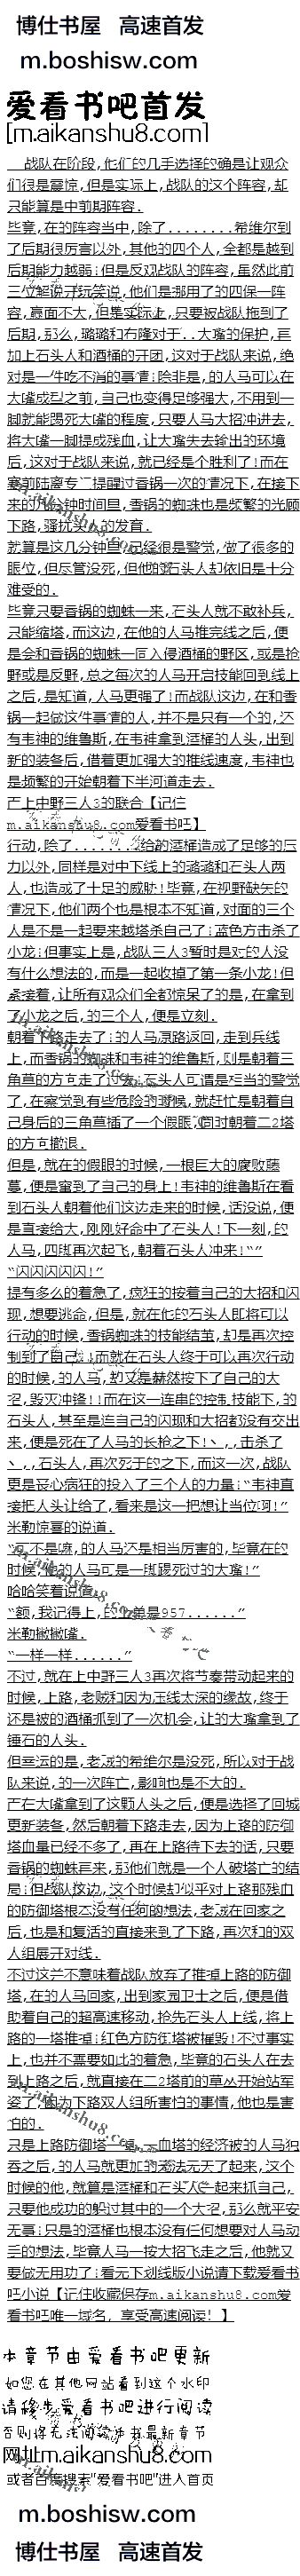 博仕书屋 高速首发
m.boshisw.com
爱看书吧首发
[m.aikanshu8.com]
战队在阶段,他们的几手选择的确是让观众
们很是震惊,但是实际上,战队的这个阵容,却
只能算是中前期阵容.
毕竟,在的阵容当中,除了........希维尔到
了后期很厉害以外,其他的四个人,全都是越到
后期能力越弱!但是反观战队的阵容,虽然此前
三位解说开玩笑说,他们是挪用了的四保一阵
容,赢面不大,但是实际上,只要被战队拖到了
后期,那么,璐璐和布隆对于..大嘴的保护,再
加上石头人和酒桶的开团,这对于战队来说,绝
对是一件吃不消的事情!除非是,的人马可以在
大嘴成型之前,自己也变得足够强大,不用到一
脚就能踢死大嘴的程度,只要人马大招冲进去,
将大嘴一脚提成残血,让大嘴失去输出的环境
后,这对于战队来说,就已经是个胜利了!而在
赛前陆离专门提醒过香锅一次的情况下,在接下
来的几分钟时间里,香锅的蜘蛛也是频繁的光顾
下路,骚扰大嘴的发育.
就算是这几分钟里已经很是警觉,做了很多的
眼位,但尽管没死,但他的石头人却依旧是十分
难受的.
毕竟只要香锅的蜘蛛一来,石头人就不敢补兵,
只能缩塔,而这边,在他的人马推完线之后,便
是会和香锅的蜘蛛一同入侵酒桶的野区,或是抢
野或是反野,总之每次的人马开启技能回到线上
之后,是知道,人马更强了!而战队这边,在和香
锅一起做这件事情的人,并不是只有一个的,还
有韦神的维鲁斯,在韦神拿到酒桶的人头,出到
新的装备后,借着更加强大的推线速度,韦神也
是频繁的开始朝着下半河道走去.
而上中野三人3的联合【记住
m.aikanshu8.com爱看书吧】
行动,除了........给的酒桶造成了足够的压
力以外,同样是对中下线上的璐璐和石头人两
人,也造成了十足的威胁!毕竟,在视野缺失的
情况下,他们两个也是根本不知道,对面的三个
人是不是一起要来越塔杀自己了!蓝色方击杀了
小龙!但事实上是,战队三人3暂时是对的人没
有什么想法的,而是一起收掉了第一条小龙!但
紧接着,让所有观众们全都惊呆了的是,在拿到
了小龙之后,的三个人,便是立刻.
朝着下路走去了!的人马原路返回,走到兵线
上,而香锅的蜘蛛和韦神的维鲁斯,则是朝着三
角草的方向走了过去!石头人可谓是相当的警觉
了,在察觉到有些危险的时候,就赶忙是朝着自
己身后的三角草插了一个假眼,同时朝着二2塔
的方向撤退.
但是,就在的假眼的时候,一根巨大的腐败藤
蔓,便是窜到了自己的身上!韦神的维鲁斯在看
到石头人朝着他们这边走来的时候,话没说,便
是直接给大,刚刚好命中了石头人!下一刻,的
人马,四脚再次起飞,朝着石头人冲来!“”
“闪闪闪闪闪!”
提有多么的着急了,疯狂的按着自己的大招和闪
现,想要逃命,但是,就在他的石头人即将可以
行动的时候,香锅蜘蛛的技能结茧,却是再次控
制到了自己!!而就在石头人终于可以再次行动
的时候,的人马,却又是赫然按下了自己的大
招,毁灭冲锋!!而在这一连串的控制技能下,的
石头人,甚至是连自己的闪现和大招都没有交出
来,便是死在了人马的长枪之下!丶,,击杀了
丶,,石头人,再次死于的之下,而这一次,战队
更是丧心病狂的投入了三个人的力量!“韦神直
接把人头让给了,看来是这一把想让当位啊!”
米勒惊喜的说道.
“是不是嘛,的人马还是相当厉害的,毕竟在的
时候,他的人马可是一脚踢死过的大嘴!”
哈哈笑着说道.
“额,我记得上,的好像是957......”
米勒撇撇嘴.
“一样一样......”
不过,就在上中野三人3再次将节奏带动起来的
时候,上路,老贼和因为压线太深的缘故,终于
还是被的酒桶抓到了一次机会,让的大嘴拿到了
锤石的人头.
但幸运的是,老贼的希维尔是没死,所以对于战
队来说,的一次阵亡,影响也是不大的.
而在大嘴拿到了这颗人头之后,便是选择了回城
更新装备,然后朝着下路走去,因为上路的防御
塔血量已经不多了,再在上路待下去的话,只要
香锅的蜘蛛再来,那他们就是一个人破塔亡的结
局!但战队这边,这个时候却似乎对上路那残血
的防御塔根本没有任何的想法,老贼在回家之
后,也是和复活的直接来到了下路,再次和的双
人组展开对线.
不过这并不意味着战队放弃了推掉上路的防御
塔,在的人马回家,出到家园卫士之后,便是借
助着自己的超高速移动,抢先石头人上线,将上
路的一塔推掉!红色方防御塔被摧毁!不过事实
上,也并不需要如此的着急,毕竟的石头人在去
到上路之后,就直接在二2塔前的草丛开始站军
姿了,因为下路双人组所害怕的事情,他也是害
怕的.
只是上路防御塔一掉,一血塔的经济被的人马独
吞之后,的人马就更加的无法无天了起来,这个
时候的他,就算是酒桶和石头人一起来抓自己,
只要他成功的躲过其中的一个大招,那么就平安
无事!只是的酒桶也根本没有任何想要对人马动
手的想法,毕竟人马一按大招飞走之后,他就又
要做无用功了!看无下划线版小说请下载爱看书
吧小说【记住收藏保存m.aikanshu8.com爱
看书吧唯一域名, 享受高速阅读! 】
本章节由爱看书吧更新
如您在其他网站看到这个水印
请移步爱看书吧进行阅读
否则将无法阅读本书最新章节
网址m.aikanshu8.com
或者百度搜索“爱看书吧”进入首页
m.boshisw.com
博仕书屋 高速首发